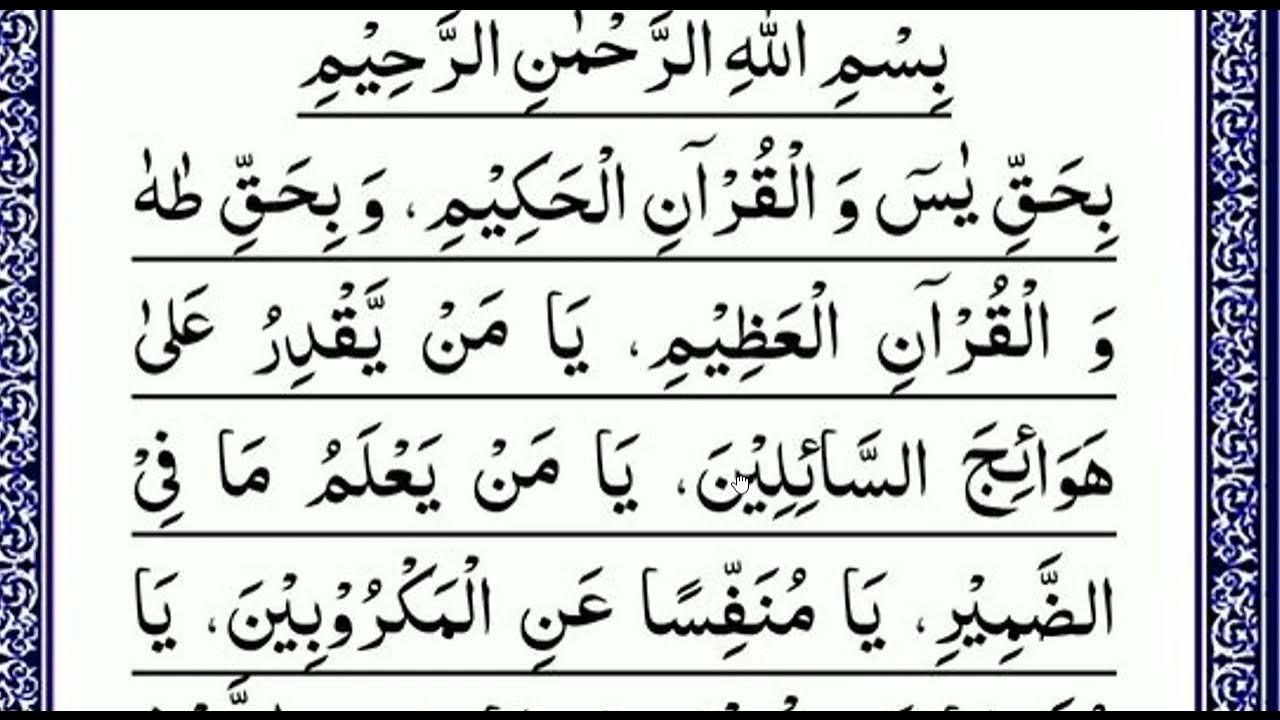 بِسْمِ اللّٰهِ الرَّحْمٰنِ الرَّحِيْمِ
بِحَقِّ يٰسٓ وَ الْقُرْآنِ الْحَكِيْمِ، وَ بِحَقِّ طٰهٰ
وَ الْقُرْآنِ الْعَظِيْمِ، يَا مَنْ يَّقْدِرُ عَلىٰ
هَوَائِجَ السَّائِلِيْنَ، يَا مَنْ يَعْلَمُ مَا فِيْ
الضَّمِيْرِ، يَا مُنَفِّسًا عَنِ الْمَكْرُوْبِيْنَ، يَا